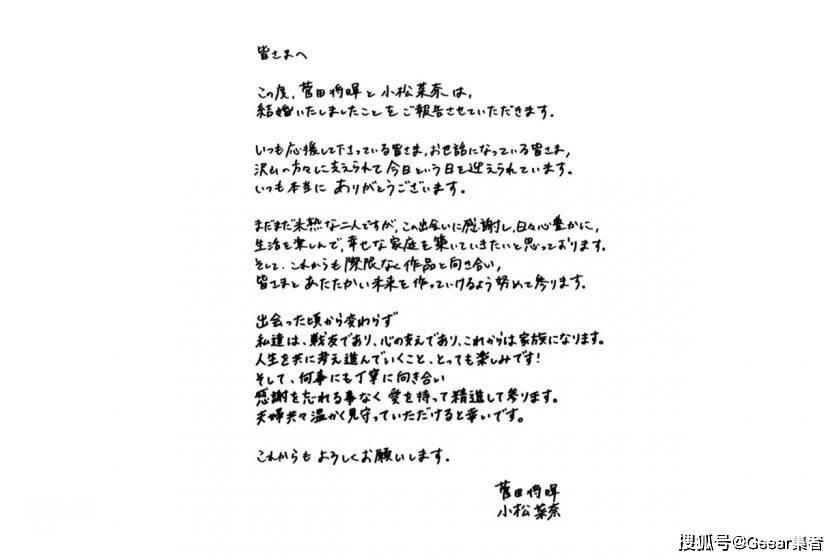 皆さまへ
この度、菅田将暉と小松菜奈は、
結婚いたしましたことをご報告させていただきます。
いつも応援して下さっている皆さま、お世話になっている皆さま、
沢山の方々に支えられて今日という日を迎えられています。
いつも本当に ありがとうございます。
まだまだ未熟な二人ですが、この出会いに感謝し、日々心豊かに、
生活を楽しんで、幸せな家庭を築いていきたいと思っております。
そして、これからも際限なく作品と向き合い、
皆さまとあたたかい未来を作っていけるよう努めて参ります。
出会った頃から変わらず
私達は、戦友であり、心の支えであり、これからは家族になります。
人生を共に考え進んでいくこと、とっても楽しみです!
そして、何事にも丁寧に向き合い
感謝を忘れる事なく 愛を持って精進して参ります。
夫婦共々温かく見守っていただけると幸いです。
これからも よろしくお願いします。
菅田将暉
小松菜奈
搜狐号@Geear集者